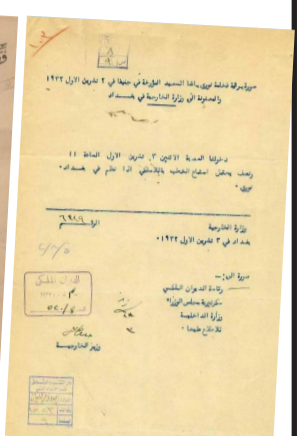 ٨
صورة برقية فخامة نوري باشا السعيد المؤرخة في جنيف في ٢ تشرين الاول ١٩٣٢
والمعنونة الى وزارة الخارجية في بغداد
دخولنا العصبة الاثنين ٣ تشرين الاول الساعة ١١
ونصف يحتمل استماع الخطب باللاسلكي اذا نظم في بغداد.
نوري.
الرقم ٦٩٢٩
وزارة الخارجية
بغداد في ٣ تشرين الاول ١٩٣٢.
صورة الى:-
رئاسة الديوان الملكي
سكرتيرية مجلس الوزراء
وزارة الداخلية
للاطلاع عليها.
وزير الخارجية
الديوان الملكي